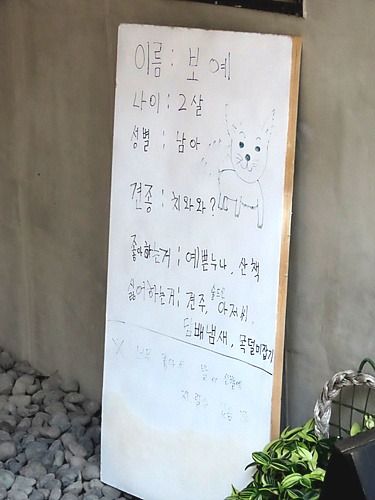 이름 : 보 예
나이 : 2살
성별 : 남아
견종 : 치와와?
좋아하는거 : 예쁜누나, 산책
싫어하는거 : 견주, 술드신 아저씨,
담배냄새, 목덜미잡기